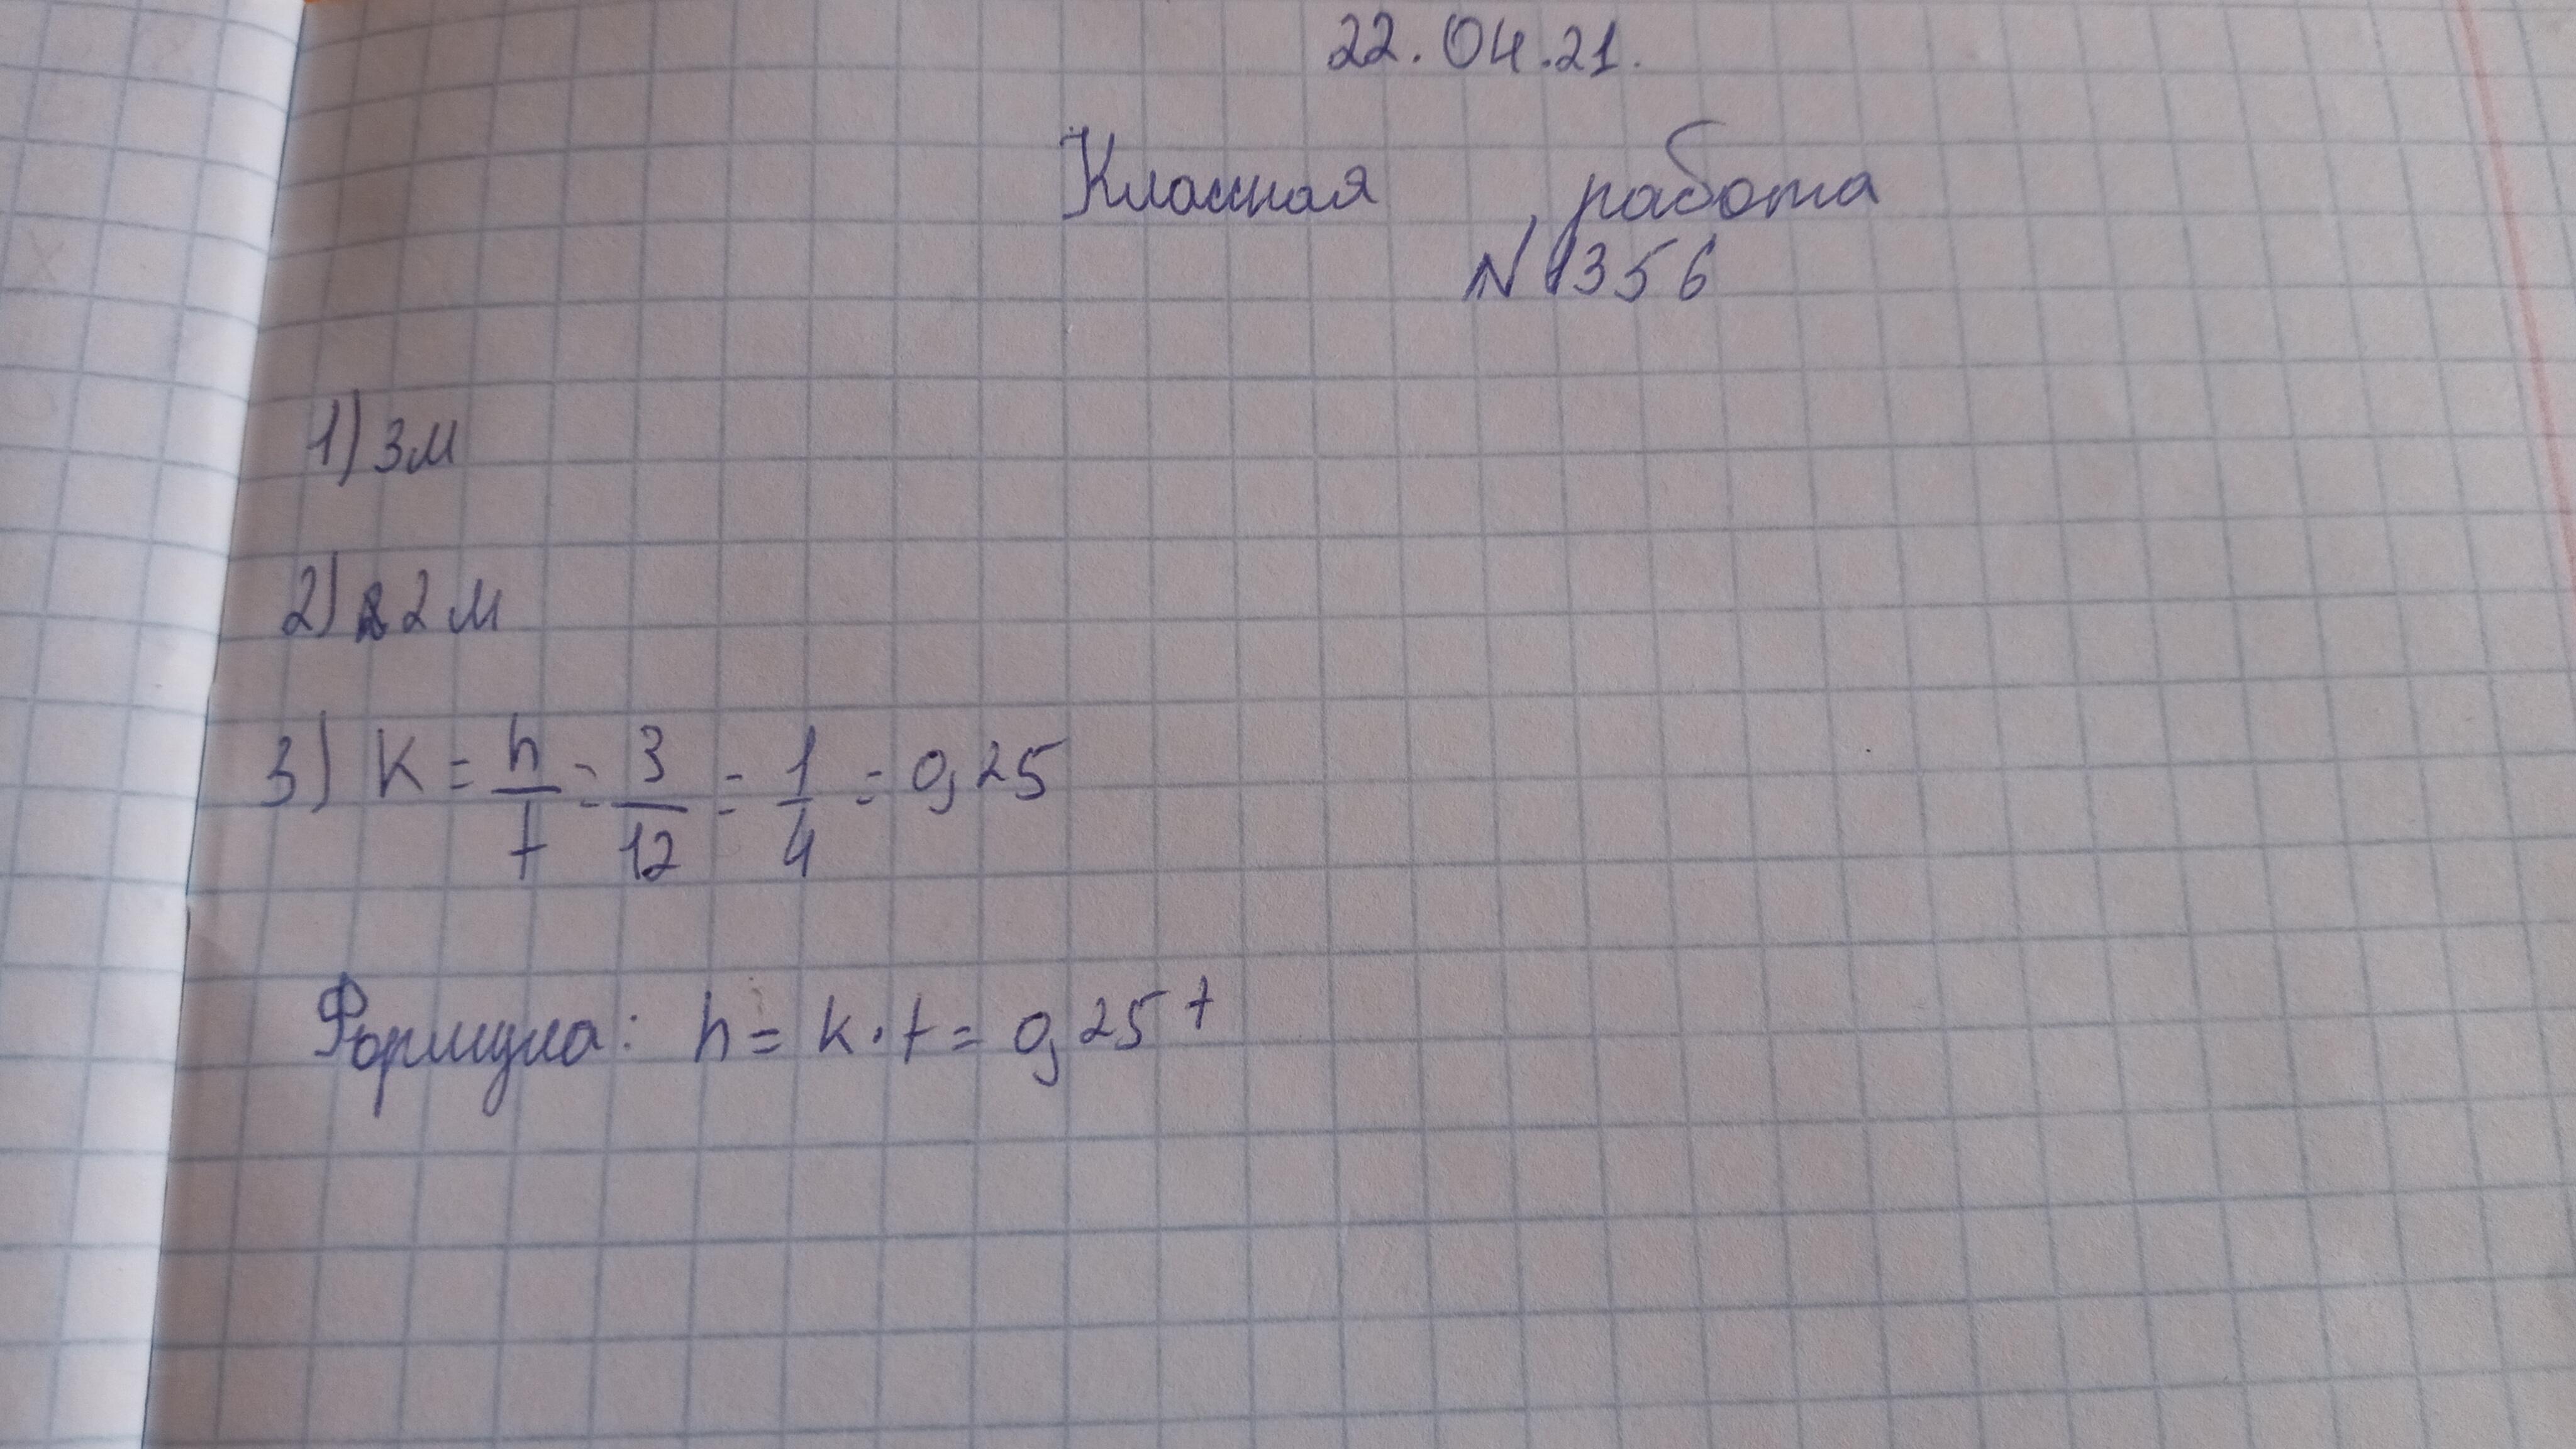 22.04.21.
Классная работа
N 1356
1) 3м
2) 2м
3) K = h/t = 3/12 = 1/4 = 0,25
Формула: h = k · t = 0,25 t